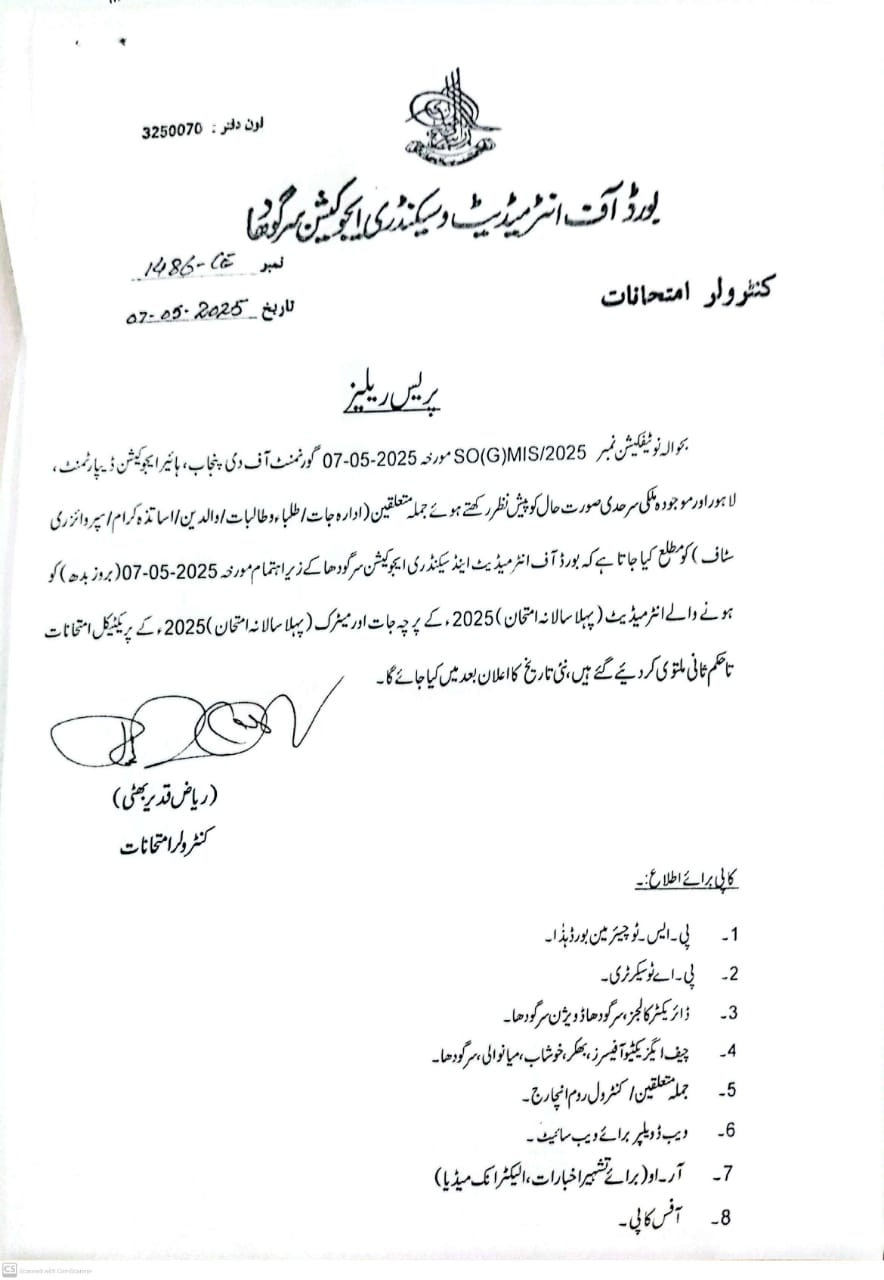 فون دفتر : 3250070
بورڈ آف انٹرمیڈیٹ و سیکنڈری ایجوکیشن سرگودھا
نمبر 1486-CE
کنٹرولر امتحانات
تاریخ 07-05-2025
پریس ریلیز
بحوالہ نوٹیفکیشن نمبر SO(G)MIS/2025 مورخہ 07-05-2025 گورنمنٹ آف دی پنجاب، ہائیر ایجوکیشن ڈیپارٹمنٹ،
لاہور اور موجودہ ملکی سرحدی صورت حال کو پیش نظر رکھتے ہوئے جملہ متعلقین (ادارہ جات/طلباء و طالبات/والدین/اساتذہ کرام/سپروائزری
سٹاف) کو مطلع کیا جاتا ہے کہ بورڈ آف انٹرمیڈیٹ اینڈ سیکنڈری ایجوکیشن سرگودھا کے زیر اہتمام مورخہ 07-05-2025 (بروز بدھ) کو
ہونے والے انٹرمیڈیٹ (پہلا سالانہ امتحان) 2025ء کے پرچہ جات اور میٹرک (پہلا سالانہ امتحان) 2025ء کے پریکٹیکل امتحانات
تا حکم ثانی ملتوی کر دیئے گئے ہیں، نئی تاریخ کا اعلان بعد میں کیا جائے گا۔
(ریاض قدیر بھٹی)
کنٹرولر امتحانات
کاپی برائے اطلاع:۔
1۔ پی۔ایس۔ٹو چیئرمین بورڈ ہٰذا۔
2۔ پی۔اے ٹو سیکرٹری۔
3۔ ڈائریکٹر کالجز، سرگودھا ڈویژن سرگودھا۔
4۔ چیف ایگزیکٹیو آفیسرز، بھکر، خوشاب، میانوالی، سرگودھا۔
5۔ جملہ متعلقین/کنٹرول روم انچارج۔
6۔ ویب ڈویلپر برائے ویب سائیٹ۔
7۔ آر۔او (برائے تشہیر اخبارات، الیکٹرانک میڈیا)
8۔ آفس کاپی۔
CS Scanned with CamScanner